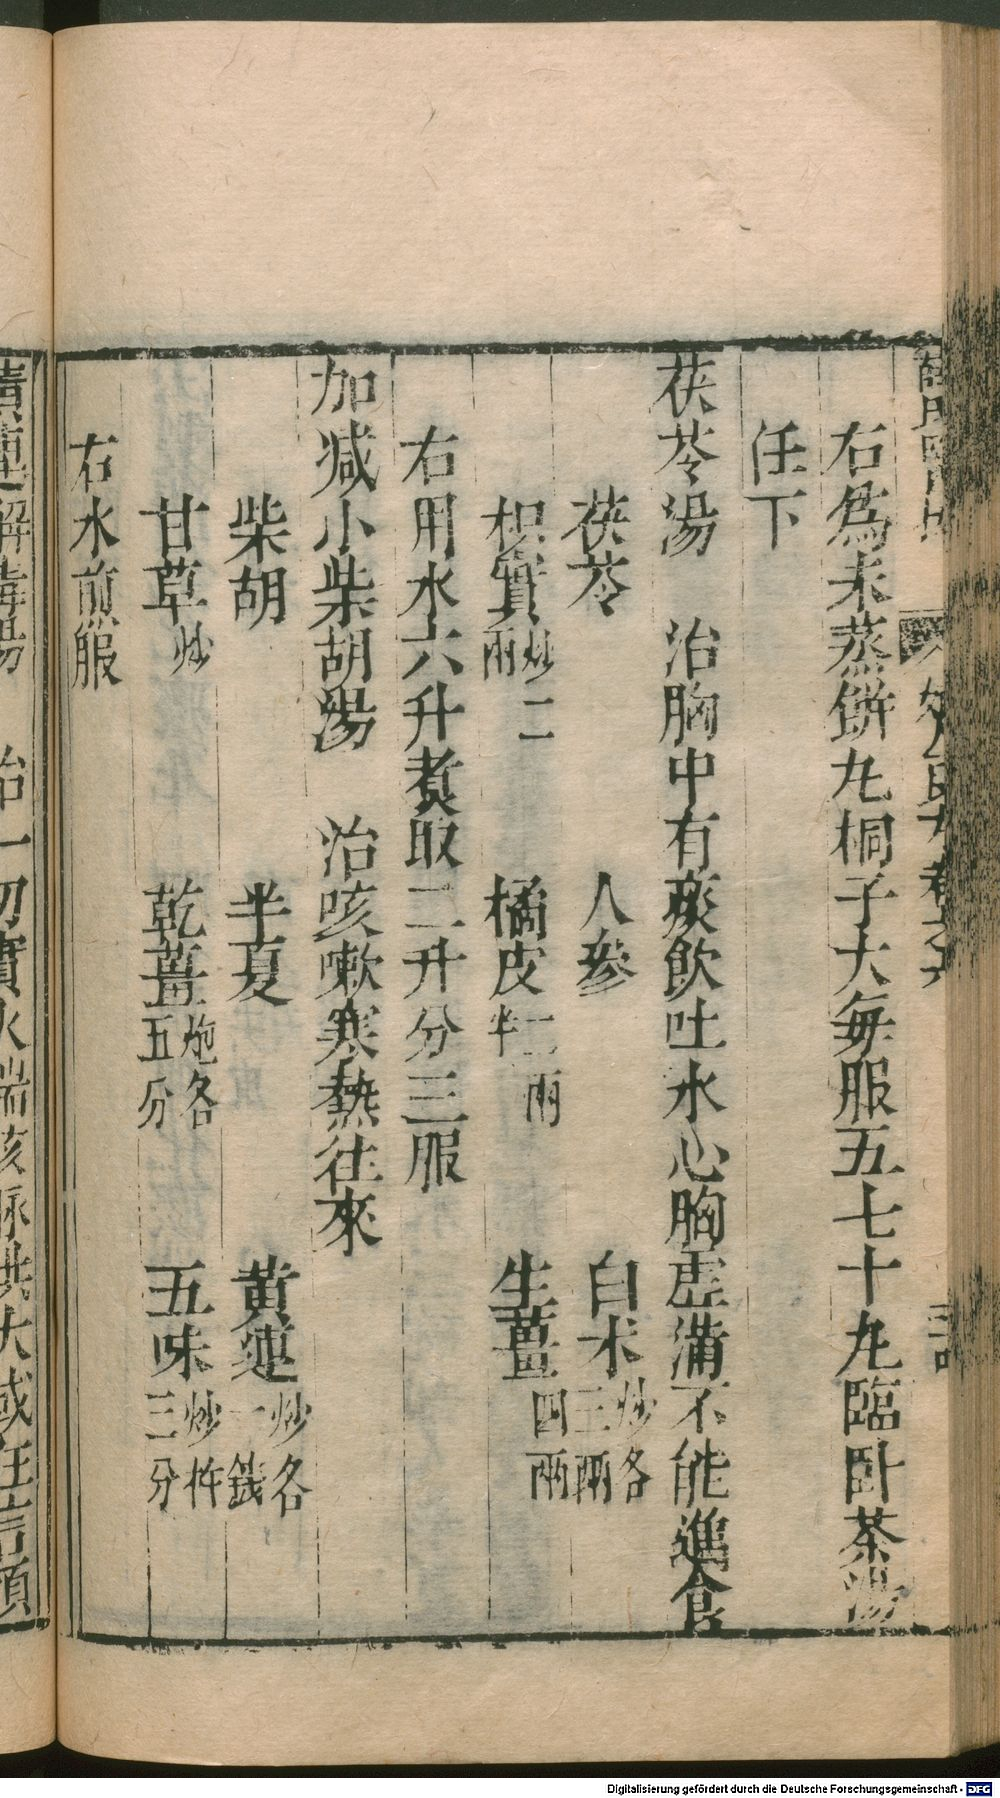 右為末蒸餅丸桐子大毎服五七十丸臨臥茶湯
任下
茯苓湯　治胸中有痰飲吐水心胸虛滿不能進食
茯苓　人參　白朮炒各三兩
枳實炒二兩　橘皮一兩半　生薑四兩
右用水六升煮取二升分三服
加减小柴胡湯　治咳嗽寒熱往來
柴胡　半夏　黃連炒各一錢
甘草炒　乾薑炮各五分　五味炒杵三分
右水煎服
黃連解毒湯　治一切實火喘咳脉洪大或狂言煩
Digitalisierung gefördert durch die Deutsche Forschungsgemeinschaft - DFG